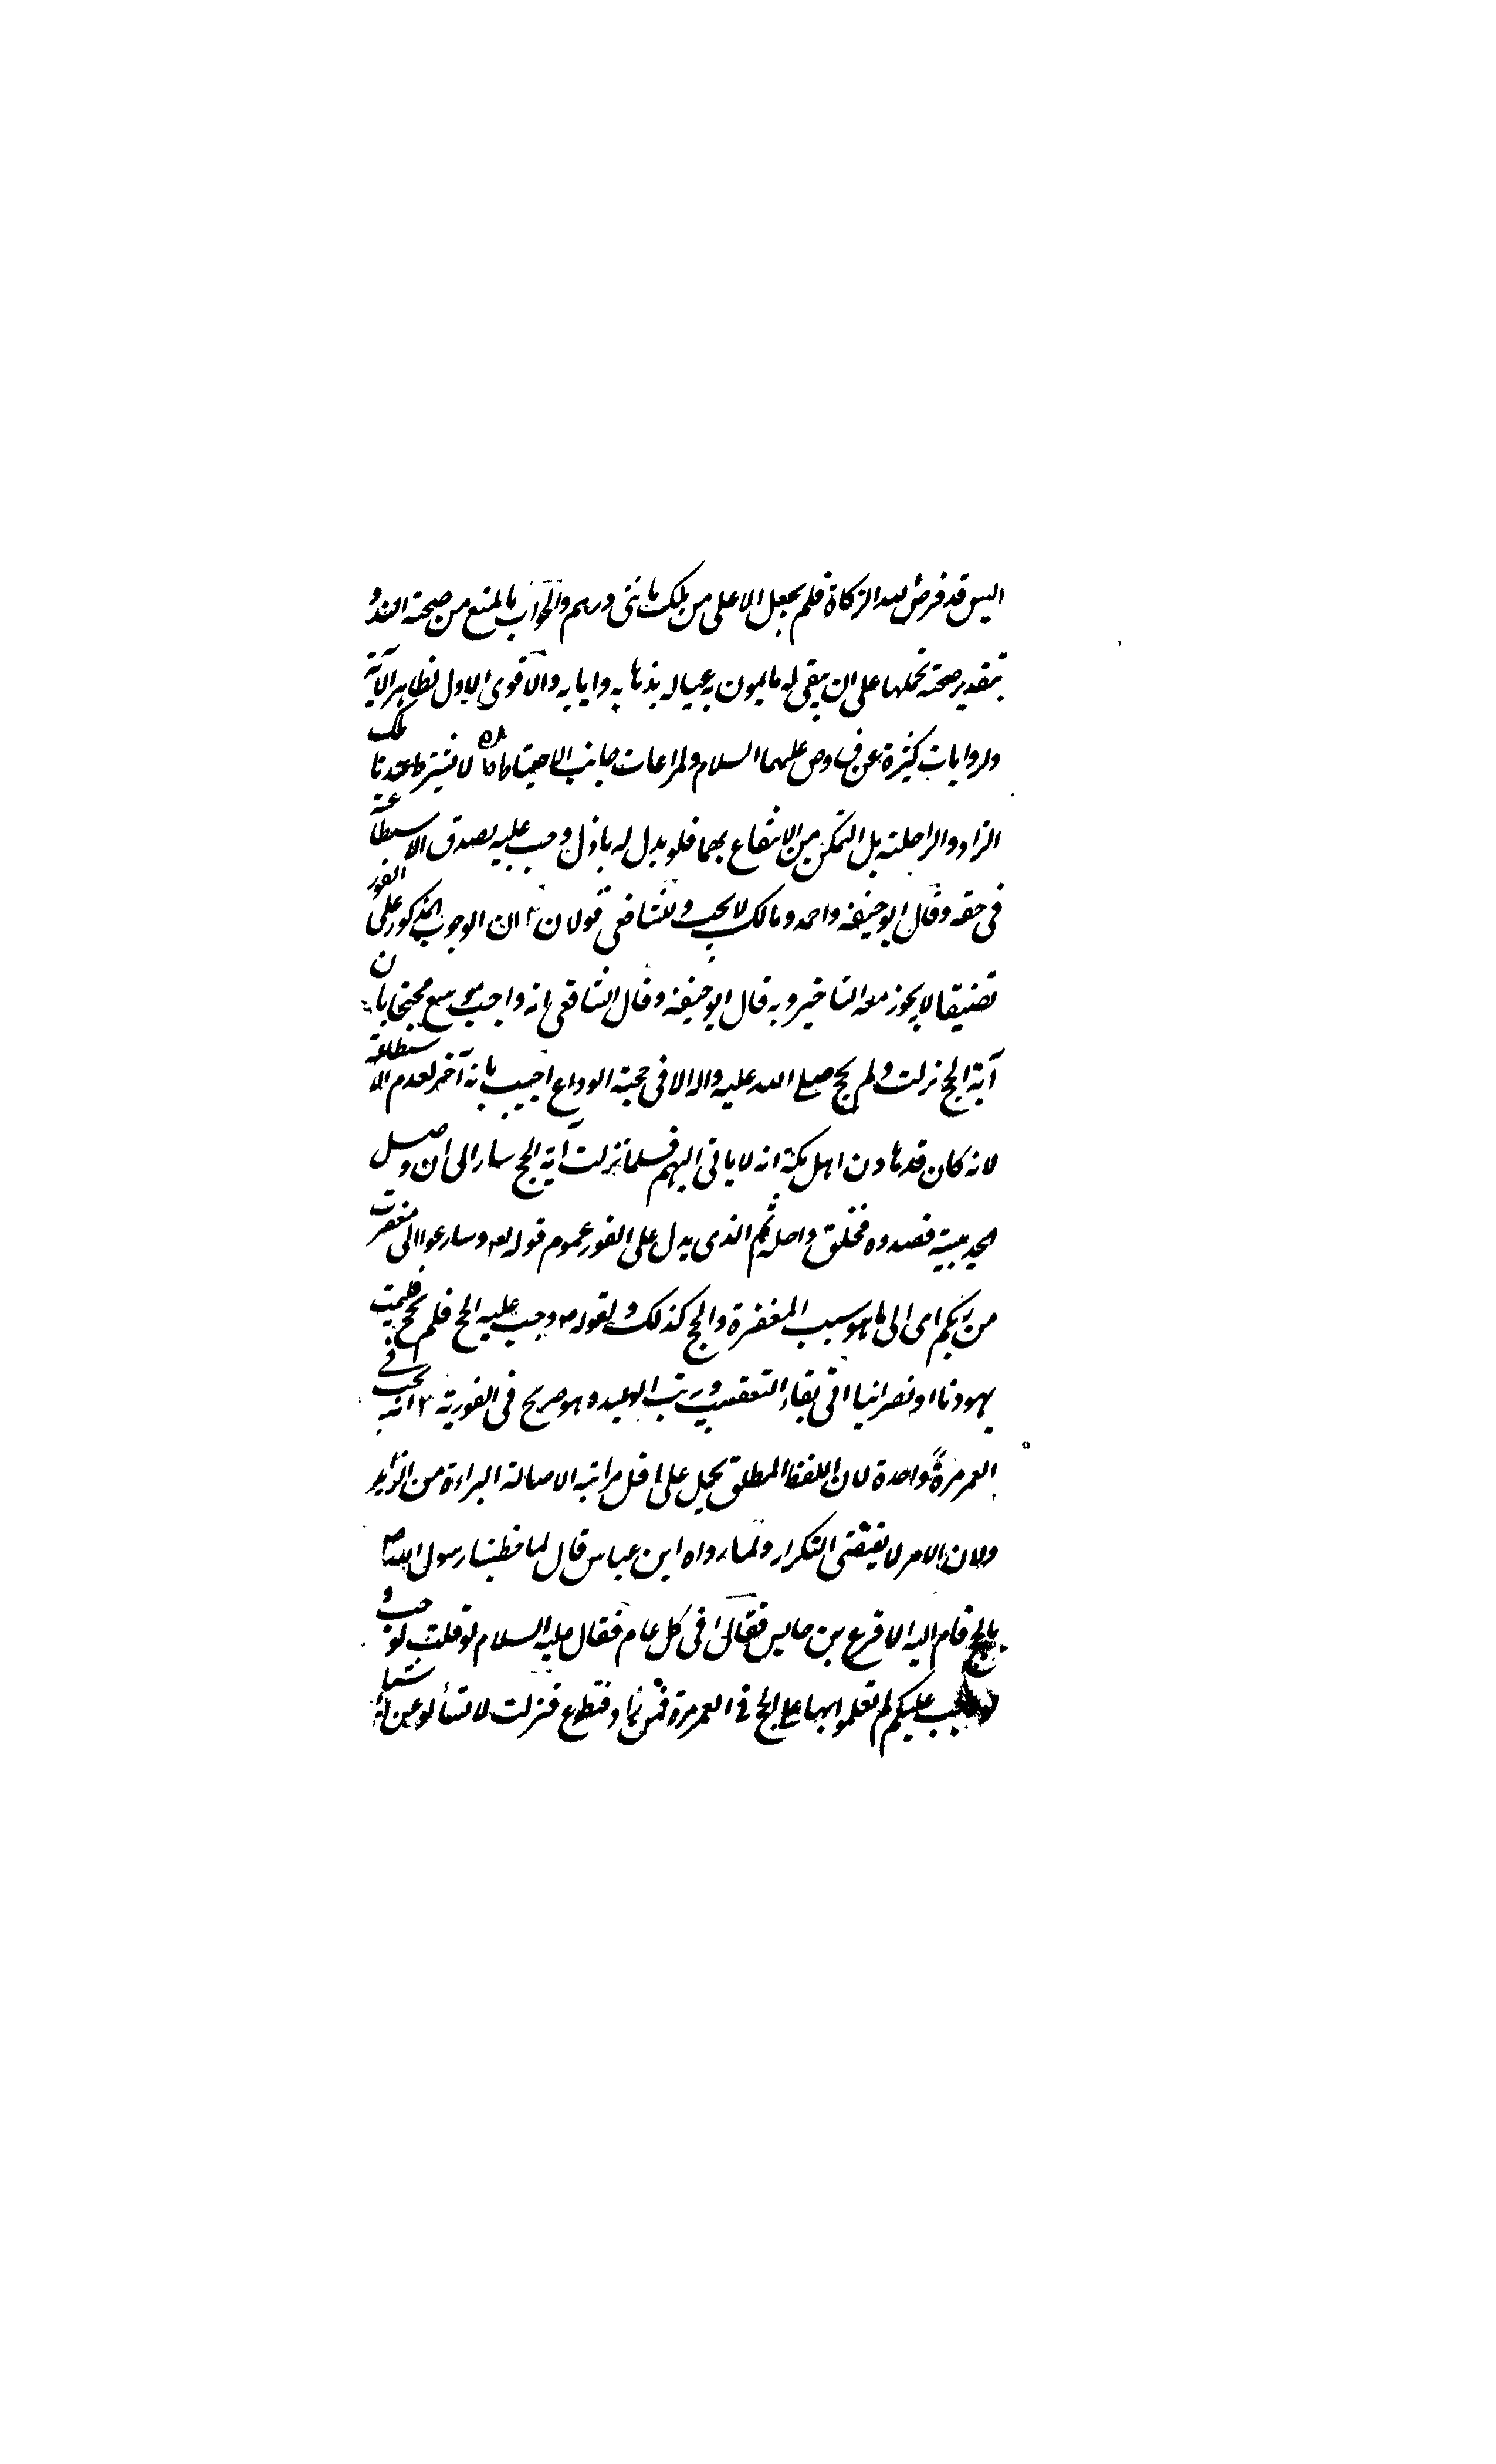 اليس قد فرض الله الزكاة فلم يجعل الا على من يملك مائتى درهم والجواب بالمنع من صحة السند و
بتقدير صحته نحملها على ان يبقى له ما يمون به عياله بذهابه وايابه والاقوى الاول لظاهر الآية
ولروايات كثيرة عن ق وص عليهما السلام ولمراعات جانب الاحتياط لا نشترط عندنا ملك
الزاد والراحلة بل التمكن من الانتفاع بهما فلو بذل له باذل وجب عليه لصدق الاستطاعة
فى حقه وقال ابو حنيفه واحمد ومالك لا يجب وللشافعى قولان ٢ ان الوجوب المذكور على الفور
تضيقا لا يجوز معه التاخير وبه قال ابو حنيفه وقال الشافعى انه واجب موسع محتجا بان
آية الحج نزلت ولم يحج صلى الله عليه واله الا فى حجة الوداع اجيب بانه آخر لعدم الاستطاعة
لانه كان قد هادن اهل مكة انه لا ياتى اليهم فلما نزلت آية الحج سار الى أن وصل
الحديبية فصدوه فحلق واحل ثم الذى يدل على الفور عموم قوله تع وسارعوا الى مغفرت
من ربكم اى الى ما هو سبب المغفرة والحج كذلك ولقوله ص وجب عليه الحج فلم يحج فليمت
يهوديا او نصرانيا اتى بفاء التعقيب ورتب الوعيد وهو صريح فى الفورية ٣ انه يجب فى
العمر مرةً واحدة لان اللفظ المطلق يحمل على اقل مراتبه الاصالة البراءة من الزايد
ولان الامر لا يقتضى التكرار ولما رواه ابن عباس قال لما خطبنا رسول الله ص
بالحج قام اليه الاقرع بن حابس فقال افى كل عام فقال عليه السلام لو قلت لوجب و
لو وجب عليكم لم تعملوا بها الحج فى العمر مرة فمن زاد فتطوع فنزلت لا تسألو عن اشيا